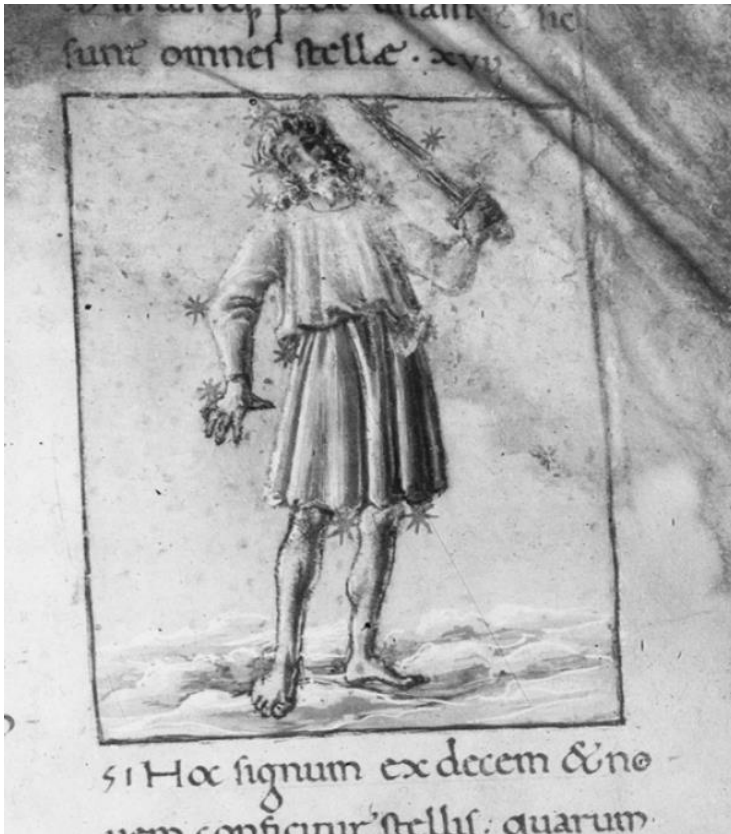 sunt omnes stellæ · xvii
51 Hoc signum ex decem & no
uem conficitur stellis: quarum